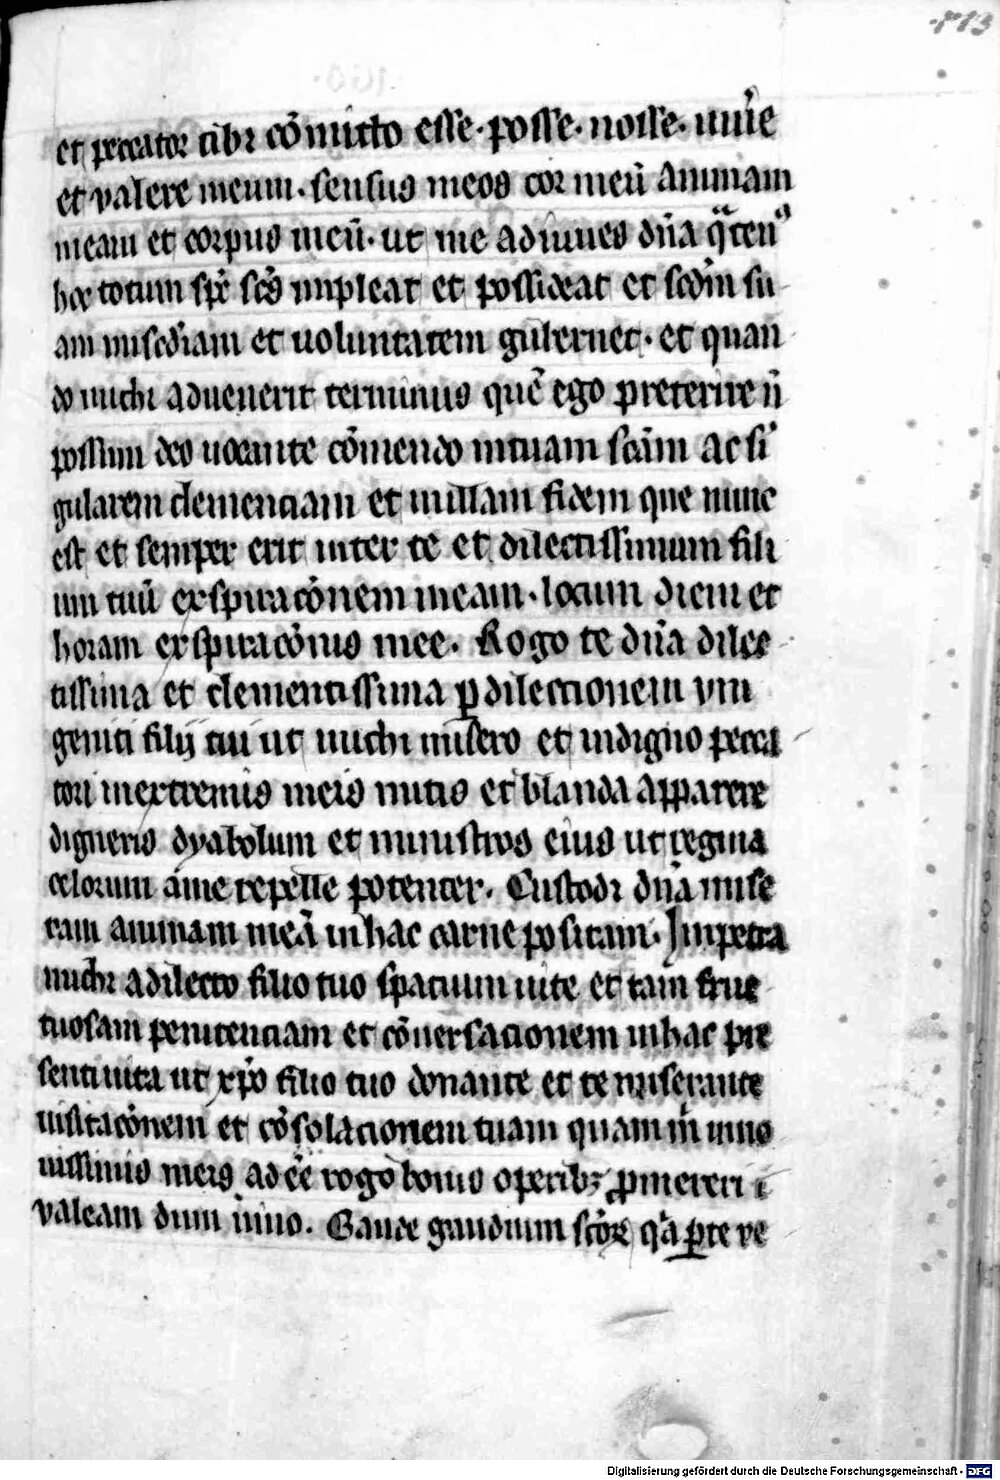 173
et peccator tibi cōmitto esse · posse · nosse · uiue͛
et valere meum · sensus meos cor meū animam
meam et corpus meū · ut me adiuues dn̄a qͣtenꝰ
hec totum spc̄ sc̄s impleat et possideat et scdm̄ su
am misc̄diam et uoluntatem gubernet · et quan
do michi aduenerit terminus quē ego preterire n̄
possum deo uocante cōmendo in tuam sc̄am ac si
gularem clementiam et in illam fidem que nunc
est et semper erit inter te et dilectissimum fili
um tuū exspiracōnem meam · locum diem et
horam exspiracōnis mee . Rogo te dn̄a dilec
tissima et clementissima ꝑ dilectionem vni
geniti filij tui ut michi misero et indigno pecca
tori in extremis meis mitis et blanda apparere
digneris dyabolum et ministros eius ut regina
celorum a me repelle potenter . Custodi dn̄a mise
ram animam meā in hac carne positam . Impetra
michi a dilecto filio tuo spatium uite et tam fruc
tuosam penitenciam et cōuersacionem in hac pre
senti uita ut xp̄o filio tuo donante et te miserante
uisitacōnem et cōsolacionem tuam quam in nouis
simis meis adēē rogo bonis operibꝫ ꝓmereri
valeam dum uiuo . Gaude gaudium sc̄oꝝ qͥa ꝑ te re
Digitalisierung gefördert durch die Deutsche Forschungsgemeinschaft - DFG